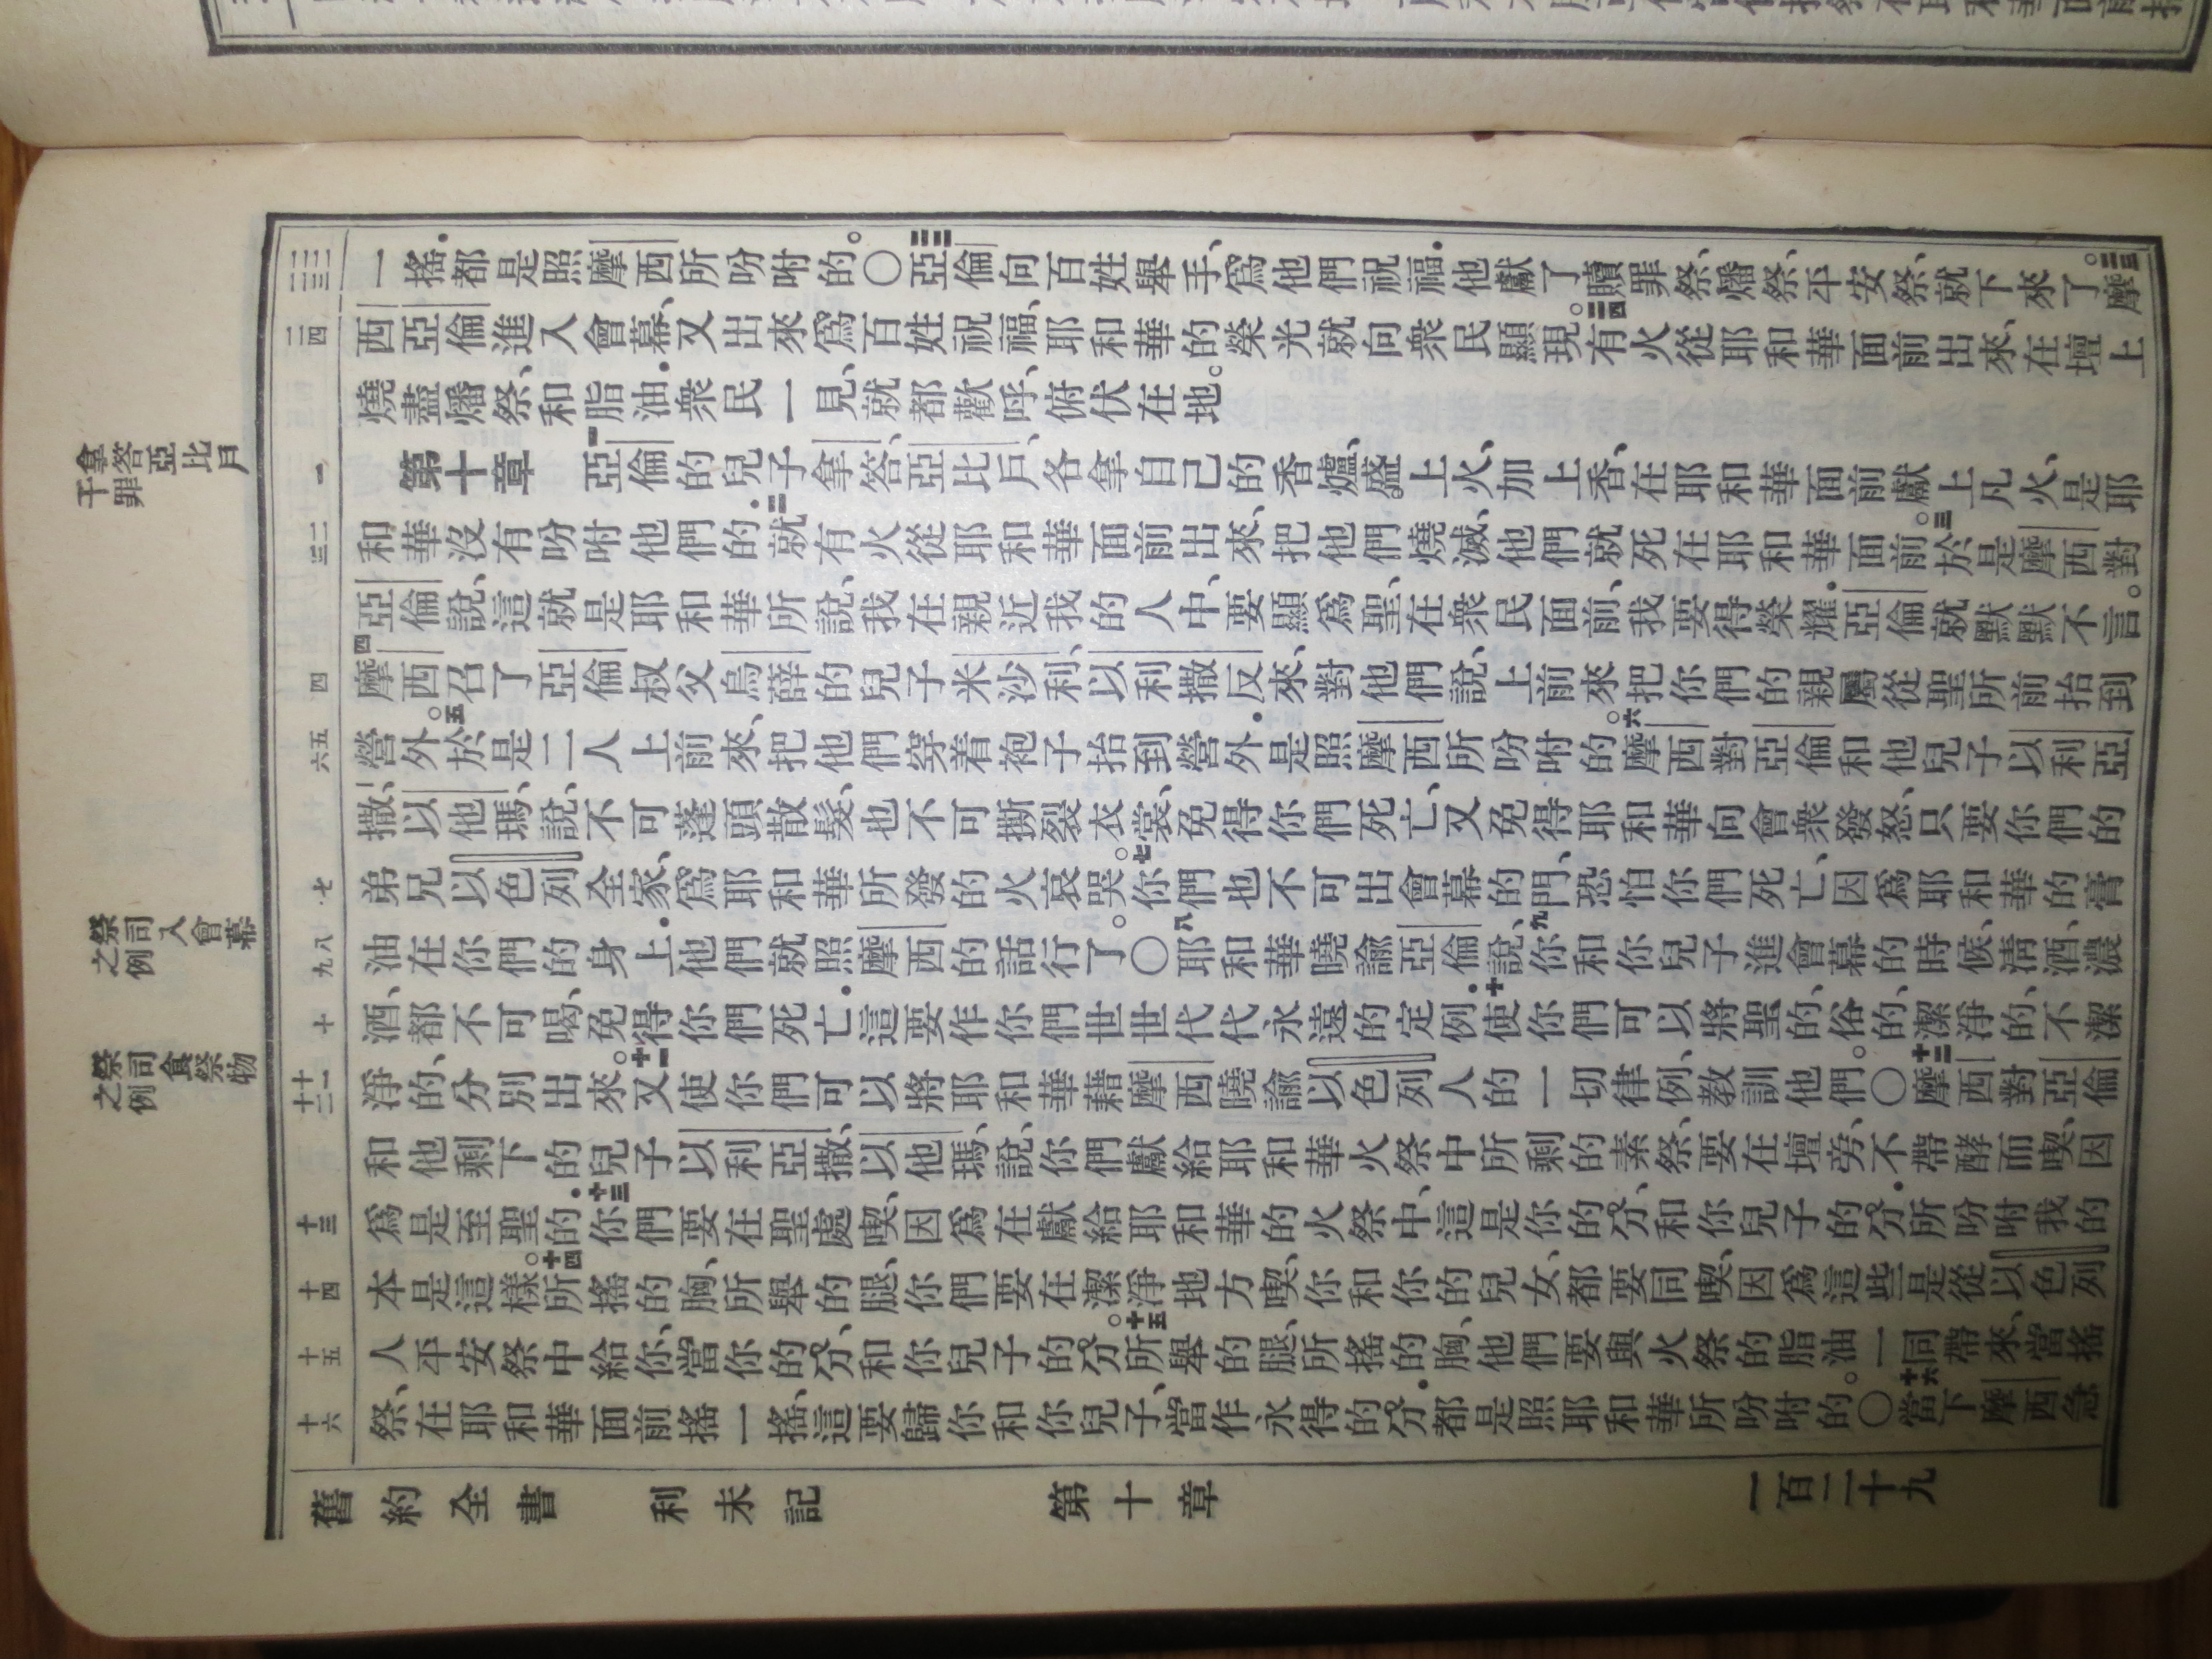 一搖．都是照摩西所吩咐的。〇二二亞倫向百姓舉手、爲他們祝福．他獻了贖罪祭、燔祭、平安祭、就下來了。二三摩
西亞倫進入會幕、又出來爲百姓祝福、耶和華的榮光就向衆民顯現。二四有火從耶和華面前出來、在壇上
燒盡燔祭、和脂油．衆民一見、就都歡呼、俯伏在地。
第十章　一亞倫的兒子拿答、亞比戶、各拿自己的香爐、盛上火、加上香、在耶和華面前獻上凡火、是耶
和華沒有吩咐他們的．二就有火從耶和華面前出來、把他們燒滅、他們就死在耶和華面前。三於是摩西對
亞倫說、這就是耶和華所說、我在親近我的人中、要顯爲聖、在衆民面前、我要得榮耀．亞倫就默默不言。
四摩西召了亞倫叔父烏薛的兒子米沙利、以利撒反來、對他們說、上前來把你們的親屬從聖所前抬到
營外。五於是二人上前來、把他們穿着袍子抬到營外．是照摩西所吩咐的。六摩西對亞倫和他兒子以利亞
撒、以他瑪、說、不可蓬頭散髮、也不可撕裂衣裳、免得你們死亡、又免得耶和華向會衆發怒、只要你們的
弟兄以色列全家、爲耶和華所發的火哀哭。七你們也不可出會幕的門、恐怕你們死亡、因爲耶和華的膏
油在你們的身上．他們就照摩西的話行了。〇八耶和華曉諭亞倫說、九你和你兒子進會幕的時候、淸酒、濃
酒、都不可喝、免得你們死亡．這要作你們世世代代永遠的定例．十使你們可以將聖的、俗的、潔淨的、不潔
淨的、分別出來。十一又使你們可以將耶和華藉摩西曉諭以色列人的一切律例、教訓他們。〇十二摩西對亞倫
和他剩下的兒子以利亞撒、以他瑪、說、你們獻給耶和華火祭中所剩的素祭、要在壇旁、不帶酵而喫、因
爲是至聖的．十三你們要在聖處喫、因爲在獻給耶和華的火祭中、這是你的分、和你兒子的分．所吩咐我的
本是這樣。十四所搖的胸、所舉的腿、你們要在潔淨地方喫、你和你的兒女、都要同喫、因爲這些是從以色列
人平安祭中給你、當你的分、和你兒子的分。十五所舉的腿、所搖的胸、他們要與火祭的脂油一同帶來、當搖
祭、在耶和華面前搖一搖、這要歸你和你兒子、當作永得的分．都是照耶和華所吩咐的。〇十六當下摩西急
舊約全書　利未記　第十章　一百二十九
二二
二三
二四
一
二
三
四
五
六
七
八
九
十
十一
十二
十三
十四
十五
十六
拿答亞比戶
干罪
祭司入會幕
之例
祭司食祭物
之例